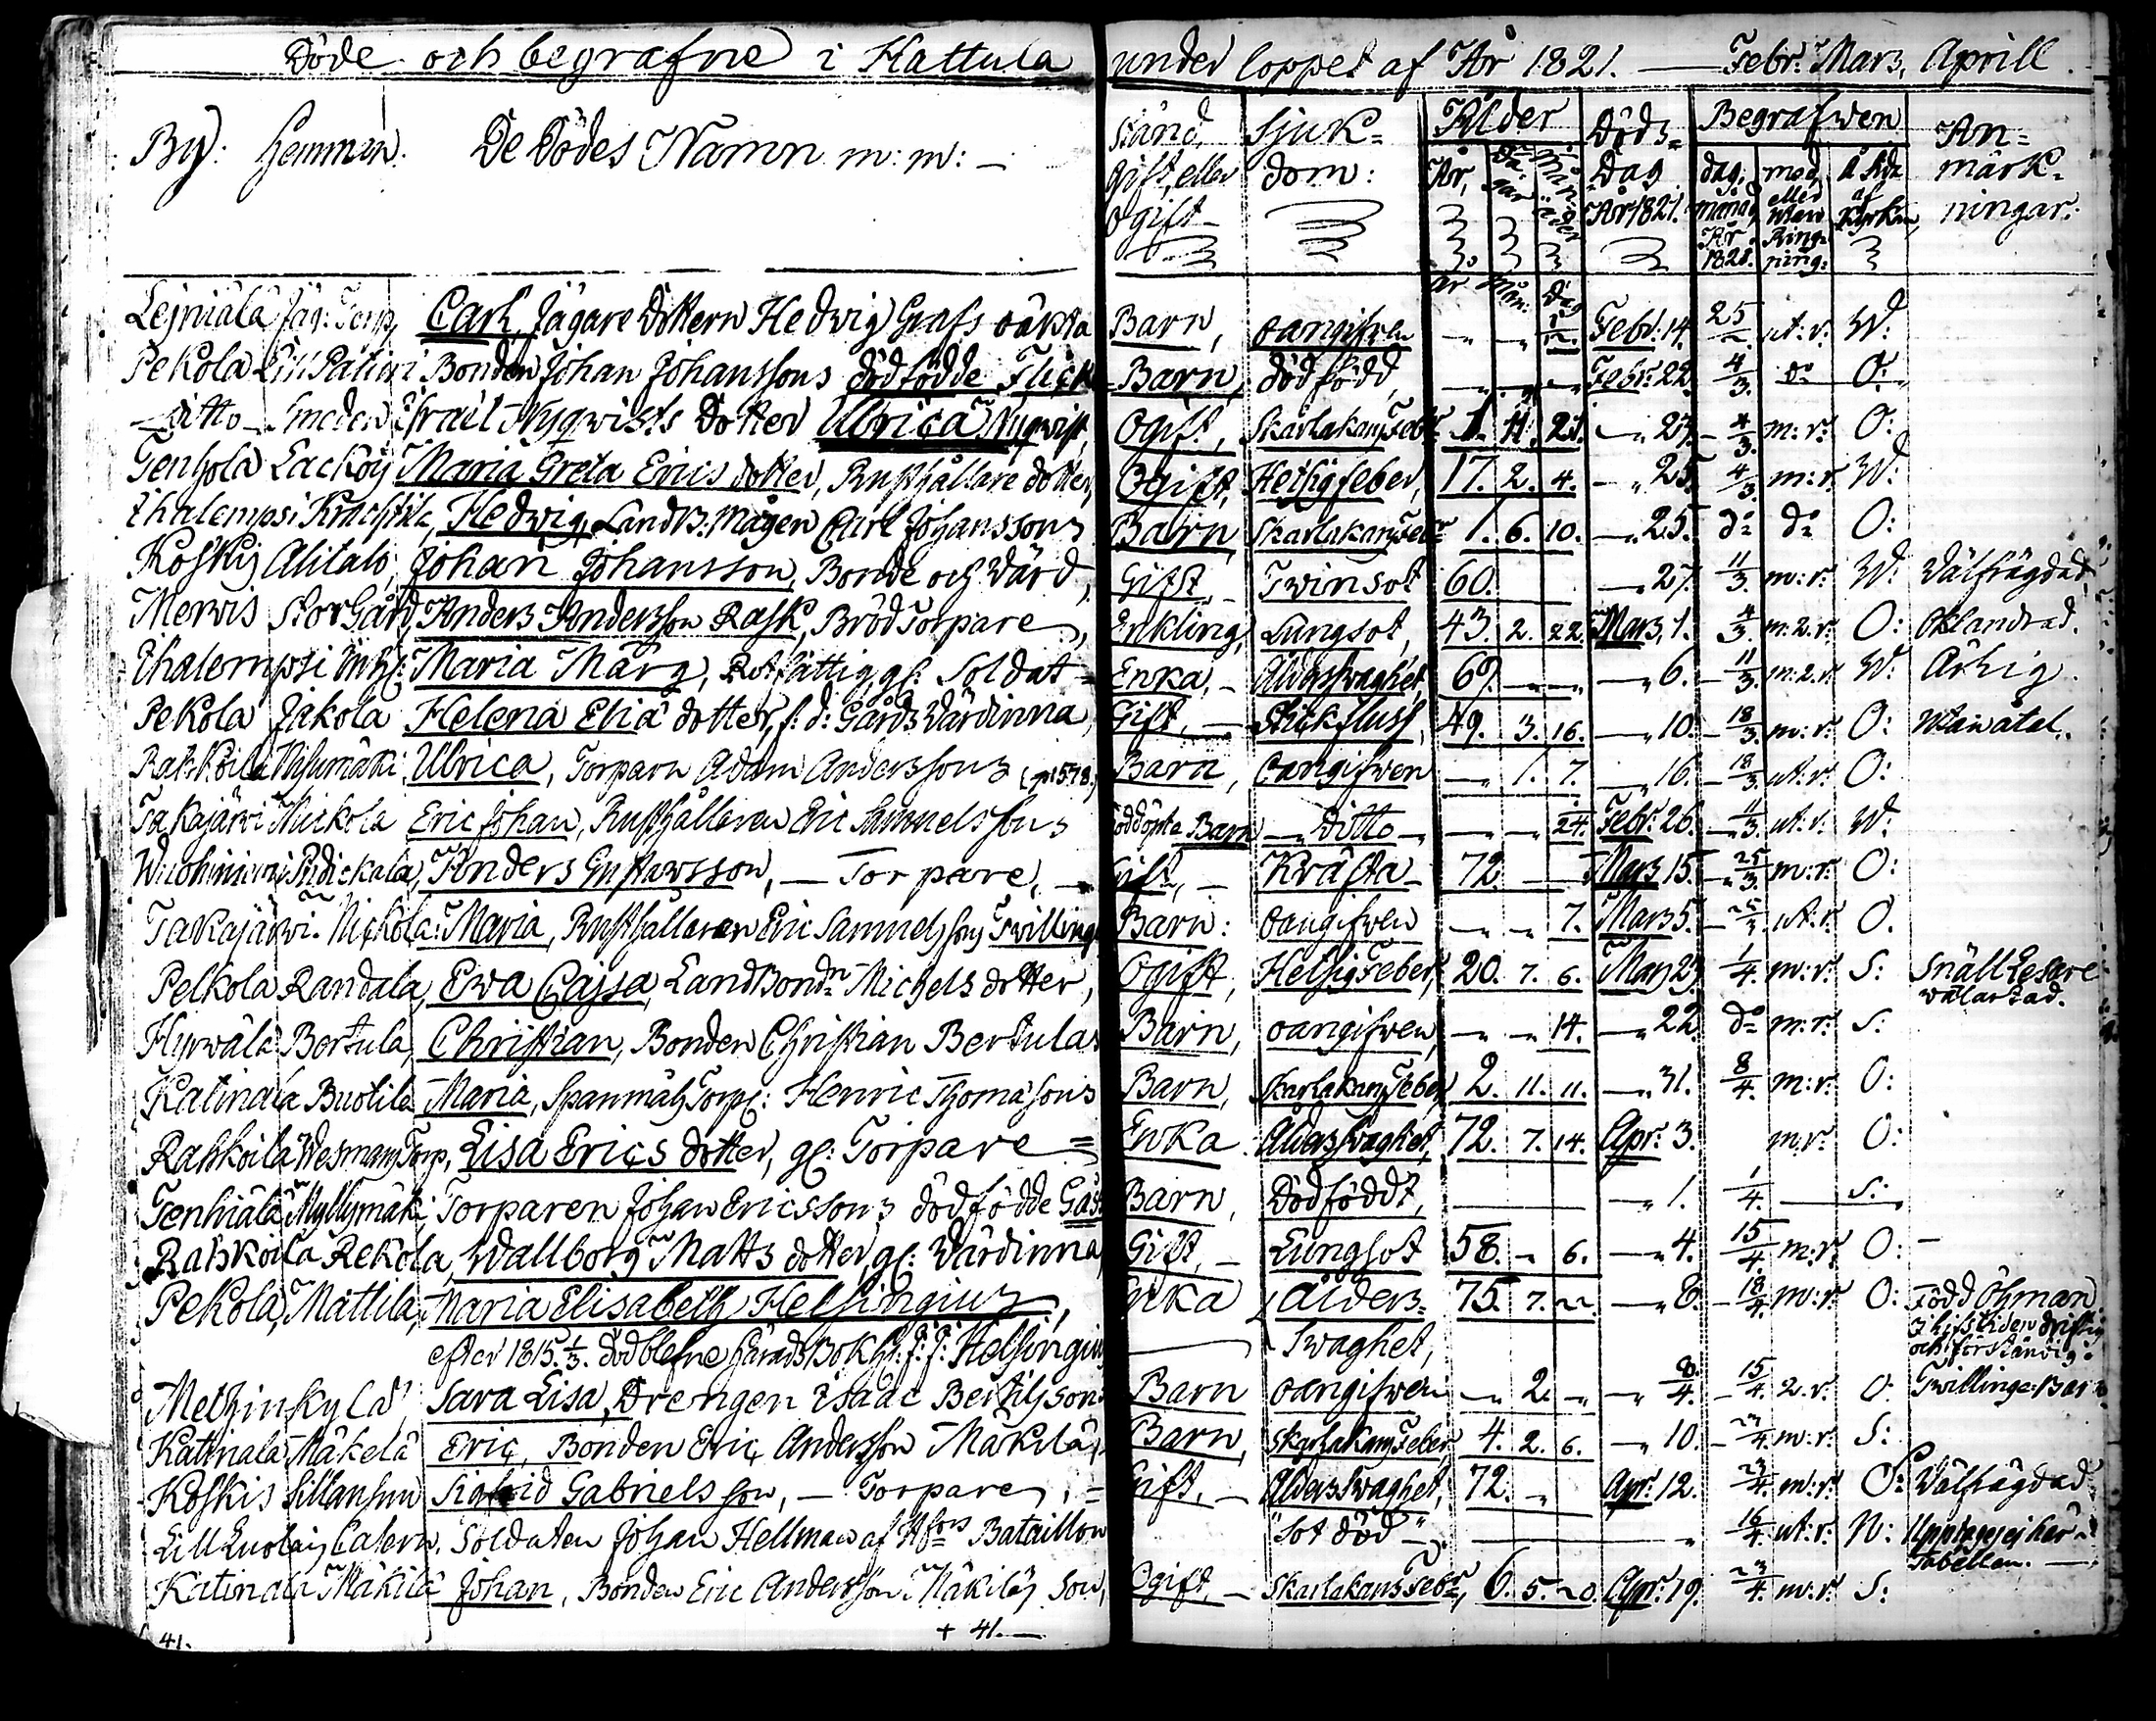 Döde och begrafne i Hattula under loppet af År 1821. — Febr: Mars, Aprill.
By: Hemman. De Dödes Namn m: m: —
Stånd, Gift, eller Ogift — Sjuk= dom: Ålder År, Da= gar Måna= der Döds= Dag År 1821. Begrafwen dag, månad År 1821. med eller utan Ring= ning: å Sida af Kyrkan, An= märk= ningar:
år Mån: Dag
Lejniälä Jäg: Torp, Carl, Jägare Dottern Hedwig Grafs oäkta Barn, oangifwen „ „ 1/2. Febr: 14. 25/2 ut: r: W:
Pekola Lill Pätiwi Bonden Johan Johanssons dödfödde Flick= Barn, dödfödd, Febr: 22. 4/3. do O:
ditto Smeden Israel Nyqwists Dotter Ulrica Nyqwist, Ogift, Skarlakans Febr 1. 11. 21. „ 23. 4/3. m: r: O:
Tenhola Lackoij Maria Greta Erics dotter, Rusthållare dotter, Ogift, Hetsigfeber, 17. 2. 4. „ 25. 4/3. m: r: W:
Ihalempsi Krachtila, Hedwig, Landb. Mågen Carl Johanssons Barn Skarlakans Feb 1. 6. 10. „ 25. do do O:
Koskij Alitalo, Johan Johansson, Bonde och Wärd, Gift, Twinsot 60. „ 27. 11/3. m: r: W: Wälfrägdad
Merwis Storgård, Anders Andersson Rask, Bröd Torpare, Enkling, Lungsot, 43. 2. 22. Mars, 1. 4/3 m: 2. r: O: Oklandrad.
Ihalempsi Maria Märg, Rotfattig gl: Soldat= Enka, — Ålderswaghet, 69. „ 6. 11/3. m: 2. r: W: Ärlig.
Pekola Jakola Helena Eliä dotter, f: d: Gårds Wärdinna, Gift, — Stickfluss, 49. 3. 16. „ 10. 18/3. m: r: O: Utan åtal.
Rahkoila Uhsumäki, Ulrica, Torparn Adam Anderssons Barn, Oangifwen „ 1. 7. „ 16. 18/3. ut: r: O:
Takajärwi Nickola Eric Johan, Rusthållaren Eric Samuelssons döpte Barn „ Ditto „ „ „ 24. Febr: 26. 11/3. ut: r: W:
Anders Gustawsson, — Torpare, — Gift, — Kräfta 72. — Mars 15. 25/3. m: r: O:
Takajärwi. Nickola: Maria, Rusthållaren Eric Samuelssons Twilling Barn: oangifwen „ „ 7. Mars 5. 25/3 ut: r: O.
Pelkola Randala, Ewa Cajsa, Land Bondn Michels dotter, Ogift, Hetsig Feber, 20. 7. 6. Mars 23. 1/4. m: r: S: Snäll Lesare wälartad.
Hyrwälä Bertula, Christian, Bonden Christian Bertulas Barn, oangifwen, „ „ 14. „ 22 do m: r: S:
Katinala Buotila Maria, Spanmåls Torp: Henric Thomasons Barn, Skarlakans Feber 2. 11. 11. „ 31. 8/4. m: r: O:
Rahkoila Wesmans Torp, Lisa Erics dotter, gl: Torpare= Enka Ålderswaghet, 72. 7. 14. Apr: 3. m: r: O:
Tenhiälä Myllymäki, Torparen Johan Ericssons dödfödde Barn, Dödföddt, „ 1. 1/4. S:
Rahkoila Rekola, Wallborg Matts dotter, gl: Wärdinna, Gift, — Lungsot 58. „ 6. „ 4. 15/4. m: r: O: —
Pekola, Mattila, Maria Elisabeth Helsingius, Enka Ålders= 75. 7. 22. „ 8. 18/4. m: r: O: Född Öhman.
efter 1815. 1/3. dödblefne Härads Bokh: J: J: Helsingius swaghet, I lifstiden driftig och förståndig.
Methinkylä, Sara Lisa, Drengen Isaac Bertilsson Barn oangifwen „ 2. „ „ 8/4. 15/4. 2. r: O Twillinge Barn
Katinala Mäkelä Eric, Bonden Eric Andersson Mäkilä, Barn, Skarlakans Feber, 4. 2. 6. „ 10. 23/4. m: r: S:
Koskis Sillansuu Sigfrid Gabrielsson, — Torpare, = Gift, — Ålderswaghet, 72. „ Apr: 12. 23/4. m: r: O: Wälfrägdad
Lill Luolais Casern, Soldaten Johan Hellman af Bataillon "Sot död" „ 16/4. ut: r: N: Upptages ej här i Tabellen. —
Katinala Mäkilä Johan, Bonden Eric Andersson Mäkiläs Son, Ogift, — Skarlakans Febr, 6. 5. 20. Apr: 19. 23/4. m: r: S:
41. + 41. —